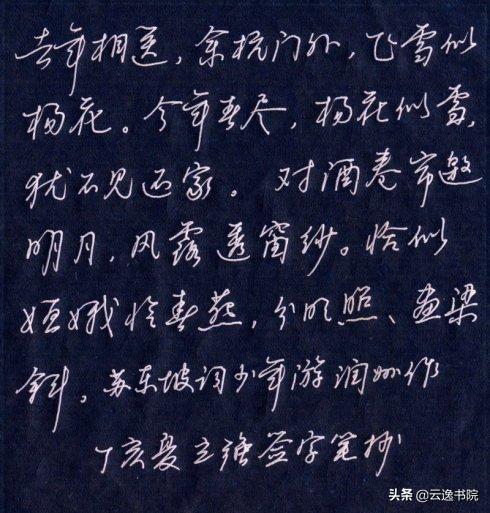 去年相送，余杭门外，飞雪似
杨花。今年春尽，杨花似雪，
犹不见还家。 对酒卷帘邀
明月，风露透窗纱。恰似
姮娥怜春燕，分明照、画梁
斜。苏东坡词少年游润州作
丁亥夏立强签字笔抄
头条@云逸书院